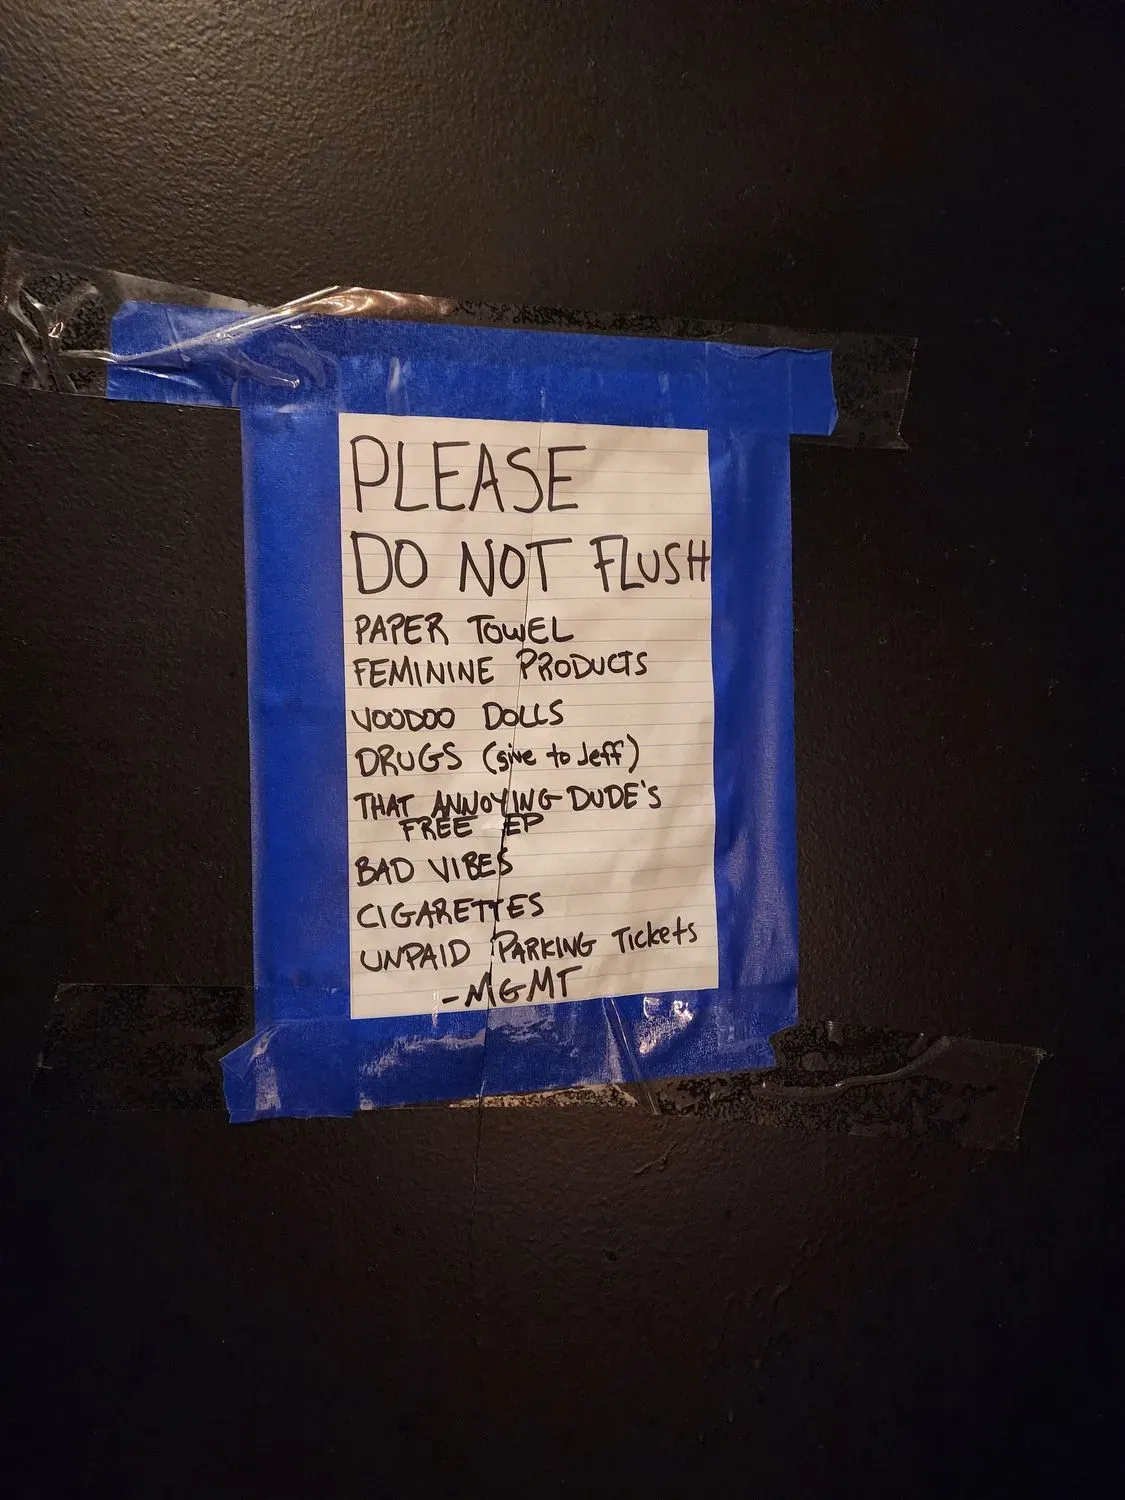 PLEASE
DO NOT FLUSH
PAPER TOWEL
FEMININE PRODUCTS
VOODOO DOLLS
DRUGS (give to Jeff)
THAT ANNOYING DUDE'S
FREE EP
BAD VIBES
CIGARETTES
UNPAID PARKING TickeTs
-MGMT